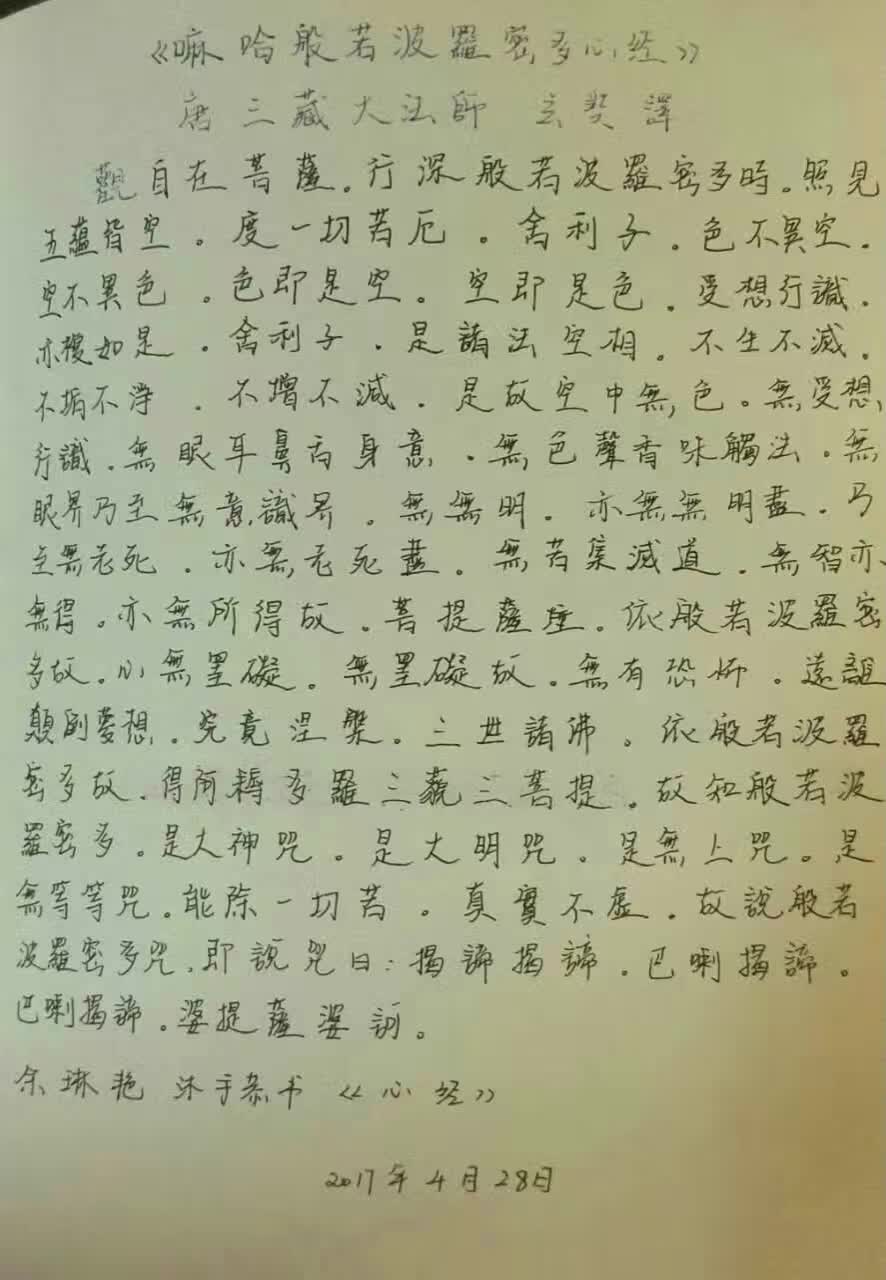 《嘛哈般若波羅密多心经》
唐三藏大法師 玄奘譯
觀自在菩薩。行深般若波羅密多時。照見
五蘊皆空。度一切苦厄。舍利子。色不異空。
空不異色。色即是空。空即是色。受想行識。
亦複如是。舍利子。是諸法空相。不生不滅。
不垢不淨。不增不減。是故空中無色。無受想
行識。無眼耳鼻舌身意。無色聲香味觸法。無
眼界乃至無意識界。無無明。亦無無明盡。乃
至無老死。亦無老死盡。無苦集滅道。無智亦
無得。亦無所得故。菩提薩埵。依般若波羅密
多故。心無罣礙。無罣礙故。無有恐怖。遠離
顛倒夢想。究竟涅槃。三世諸佛。依般若波羅
密多故。得阿耨多羅三藐三菩提。故知般若波
羅密多。是大神咒。是大明咒。是無上咒。是
無等等咒。能除一切苦。真實不虛。故說般若
波羅密多咒。即說咒曰:揭諦揭諦。巴喇揭諦。
巴喇揭諦。婆提薩婆訶。
余琳艳 沐手恭书《心经》
2017年4月28日